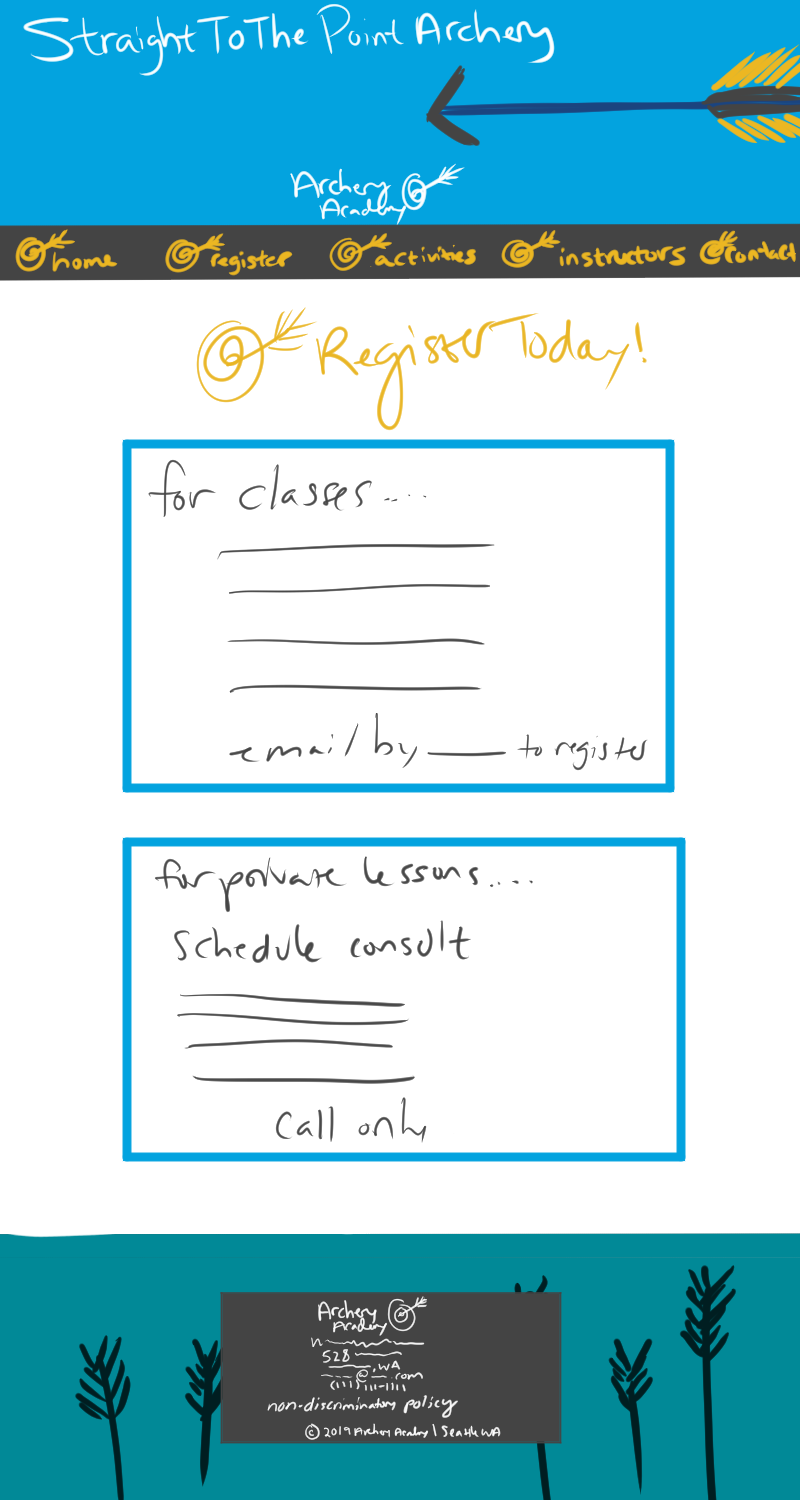 StraightToThe Point Archery
Archery
Academy
home register activities instructors contact
Register Today!
for classes....
email by ____ to register
for private lessons....
Schedule consult
Call only
Archery
Academy
528
, WA
@ .com
(111) 111-1111
non-discriminatory policy
© 2019 Archery Academy | Seattle WA